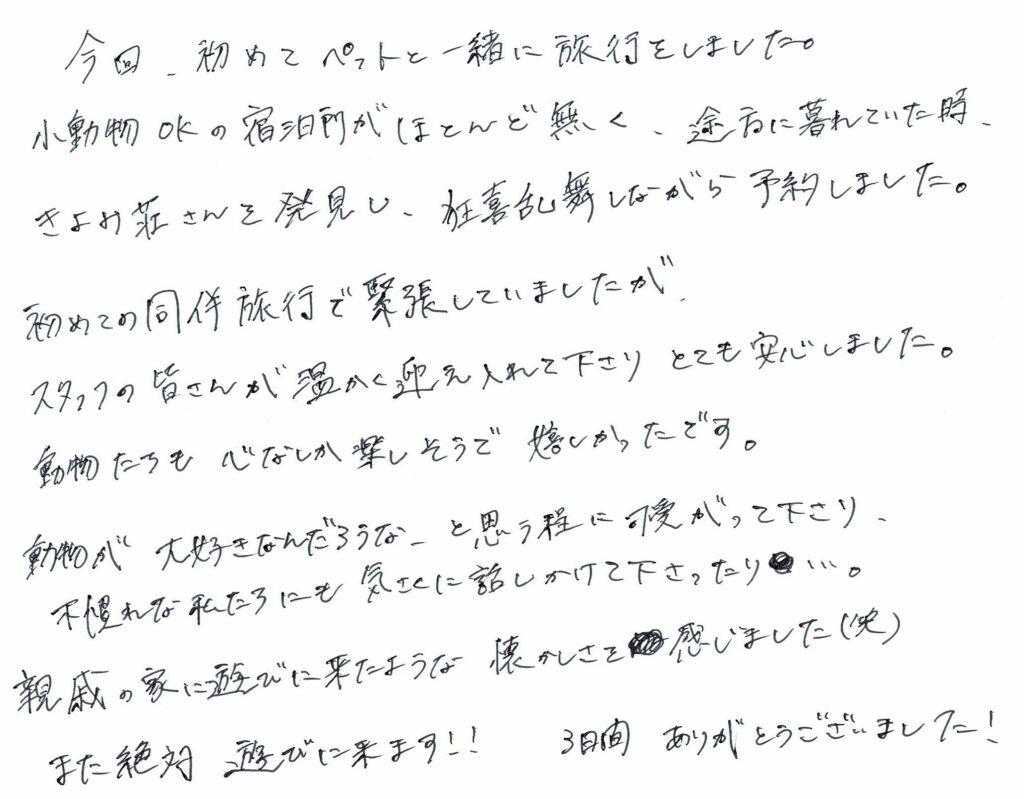 今回、初めてペットと一緒に旅行をしました。
小動物OKの宿泊所がほとんど無く、途方に暮れていた時、
きよみ荘さんを発見し、狂喜乱舞しながら予約しました。
初めての同伴旅行で緊張していましたが、
スタッフの皆さんが温かく迎え入れて下さりとても安心しました。
動物たちも心なしか楽しそうで嬉しかったです。
動物が大好きなんだろうな、と思う程に可愛がって下さり、
不慣れな私たちにも気さくに話しかけて下さったり…。
親戚の家に遊びに来たような懐かしさを感じました(笑)
また絶対遊びに来ます!! 3日間ありがとうございました!